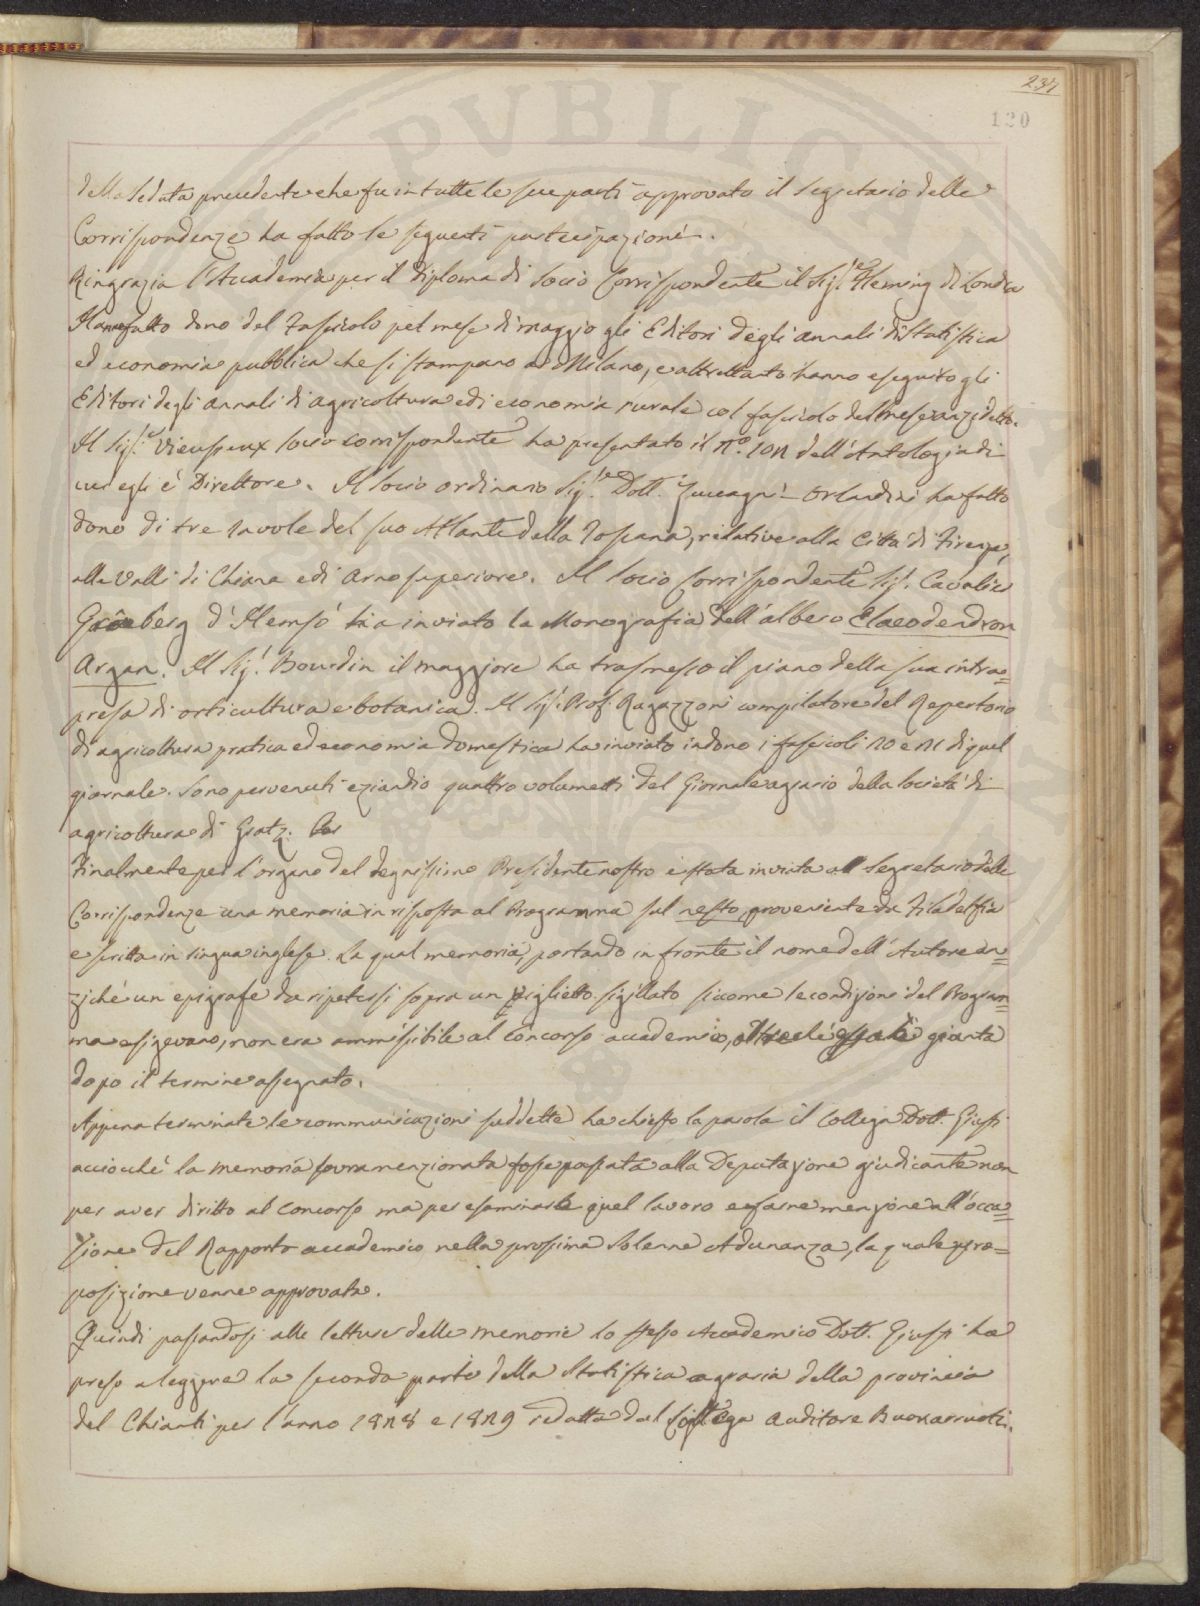 237
120
della seduta precedente che fu in tutte le sue parti approvato il Segretario delle
Corrispondenze ha fatto le seguenti partecipazioni.
Ringrazia l'Accademia per il diploma di Socio Corrispondente il Sig.re Fleming di Londra
Hanno fatto dono del Fascicolo pel mese di maggio gli Editori degli annali di Statistica
ed economia pubblica che si stampano a Milano, e altrettanto hanno eseguito gli
Editori degli annali di agricoltura e di economia rurale col fascicolo del mese anzidetto.
Il Sig.re Vieusseux socio corrispondente ha presentato il n.o 102 dell'Antologia di
cui egli è Direttore. Il socio ordinario Sig.re Dott. Zuccagni-Orlandini ha fatto
dono di tre tavole del suo Atlante della Toscana, relative alla Città di Firenze,
alle Valli di Chiana e di Arno superiore. Il socio Corrispondente Sig. Cavalier
Gråberg d'Hemsö ha inviato la Monografia dell'albero Elaeodendron
Argan. Il Sig. Bourdin il maggiore ha trasmesso il piano della sua intra=
presa di orticultura e botanica. Il Sig. Prof. Ragazzoni compilatore del Repertorio
di agricoltura pratica ed economia domestica ha inviato in dono i fascicoli 20 e 21 di quel
giornale. Sono pervenuti eziandio quattro volumetti del Giornale agrario della Società di
agricoltura di Gratz.
Finalmente per l'organo del degnissimo Presidente nostro è stata inviata al Segretario delle
Corrispondenze una memoria in risposta al Programma sul nesto, proveniente da Filadelfia
e scritta in lingua inglese. La qual memoria, portando in fronte il nome dell'Autore an=
zichè un epigrafe da ripetersi sopra un biglietto sigillato siccome le condizioni del Program=
ma esigevano, non era ammissibile al concorso accademico, oltrechè essa è giunta
dopo il termine assegnato.
Appena terminate le communicazioni suddette ha chiesto la parola il Collega Dott. Giusti
acciocchè la memoria sovramenzionata fosse passata alla Deputazione giudicante non
per aver diritto al concorso ma per esaminare quel lavoro e farne menzione all'occa=
sione del Rapporto accademico nella prossima Solenne Adunanza, la quale pro=
posizione venne approvata.
Quindi passandosi alle letture delle memorie lo stesso Accademico Dott. Giusti ha
preso a leggere la seconda parte della Statistica agraria della provincia
del Chianti per l'anno 1828 e 1829 redatta dal Collega Auditore Buonarruoti.